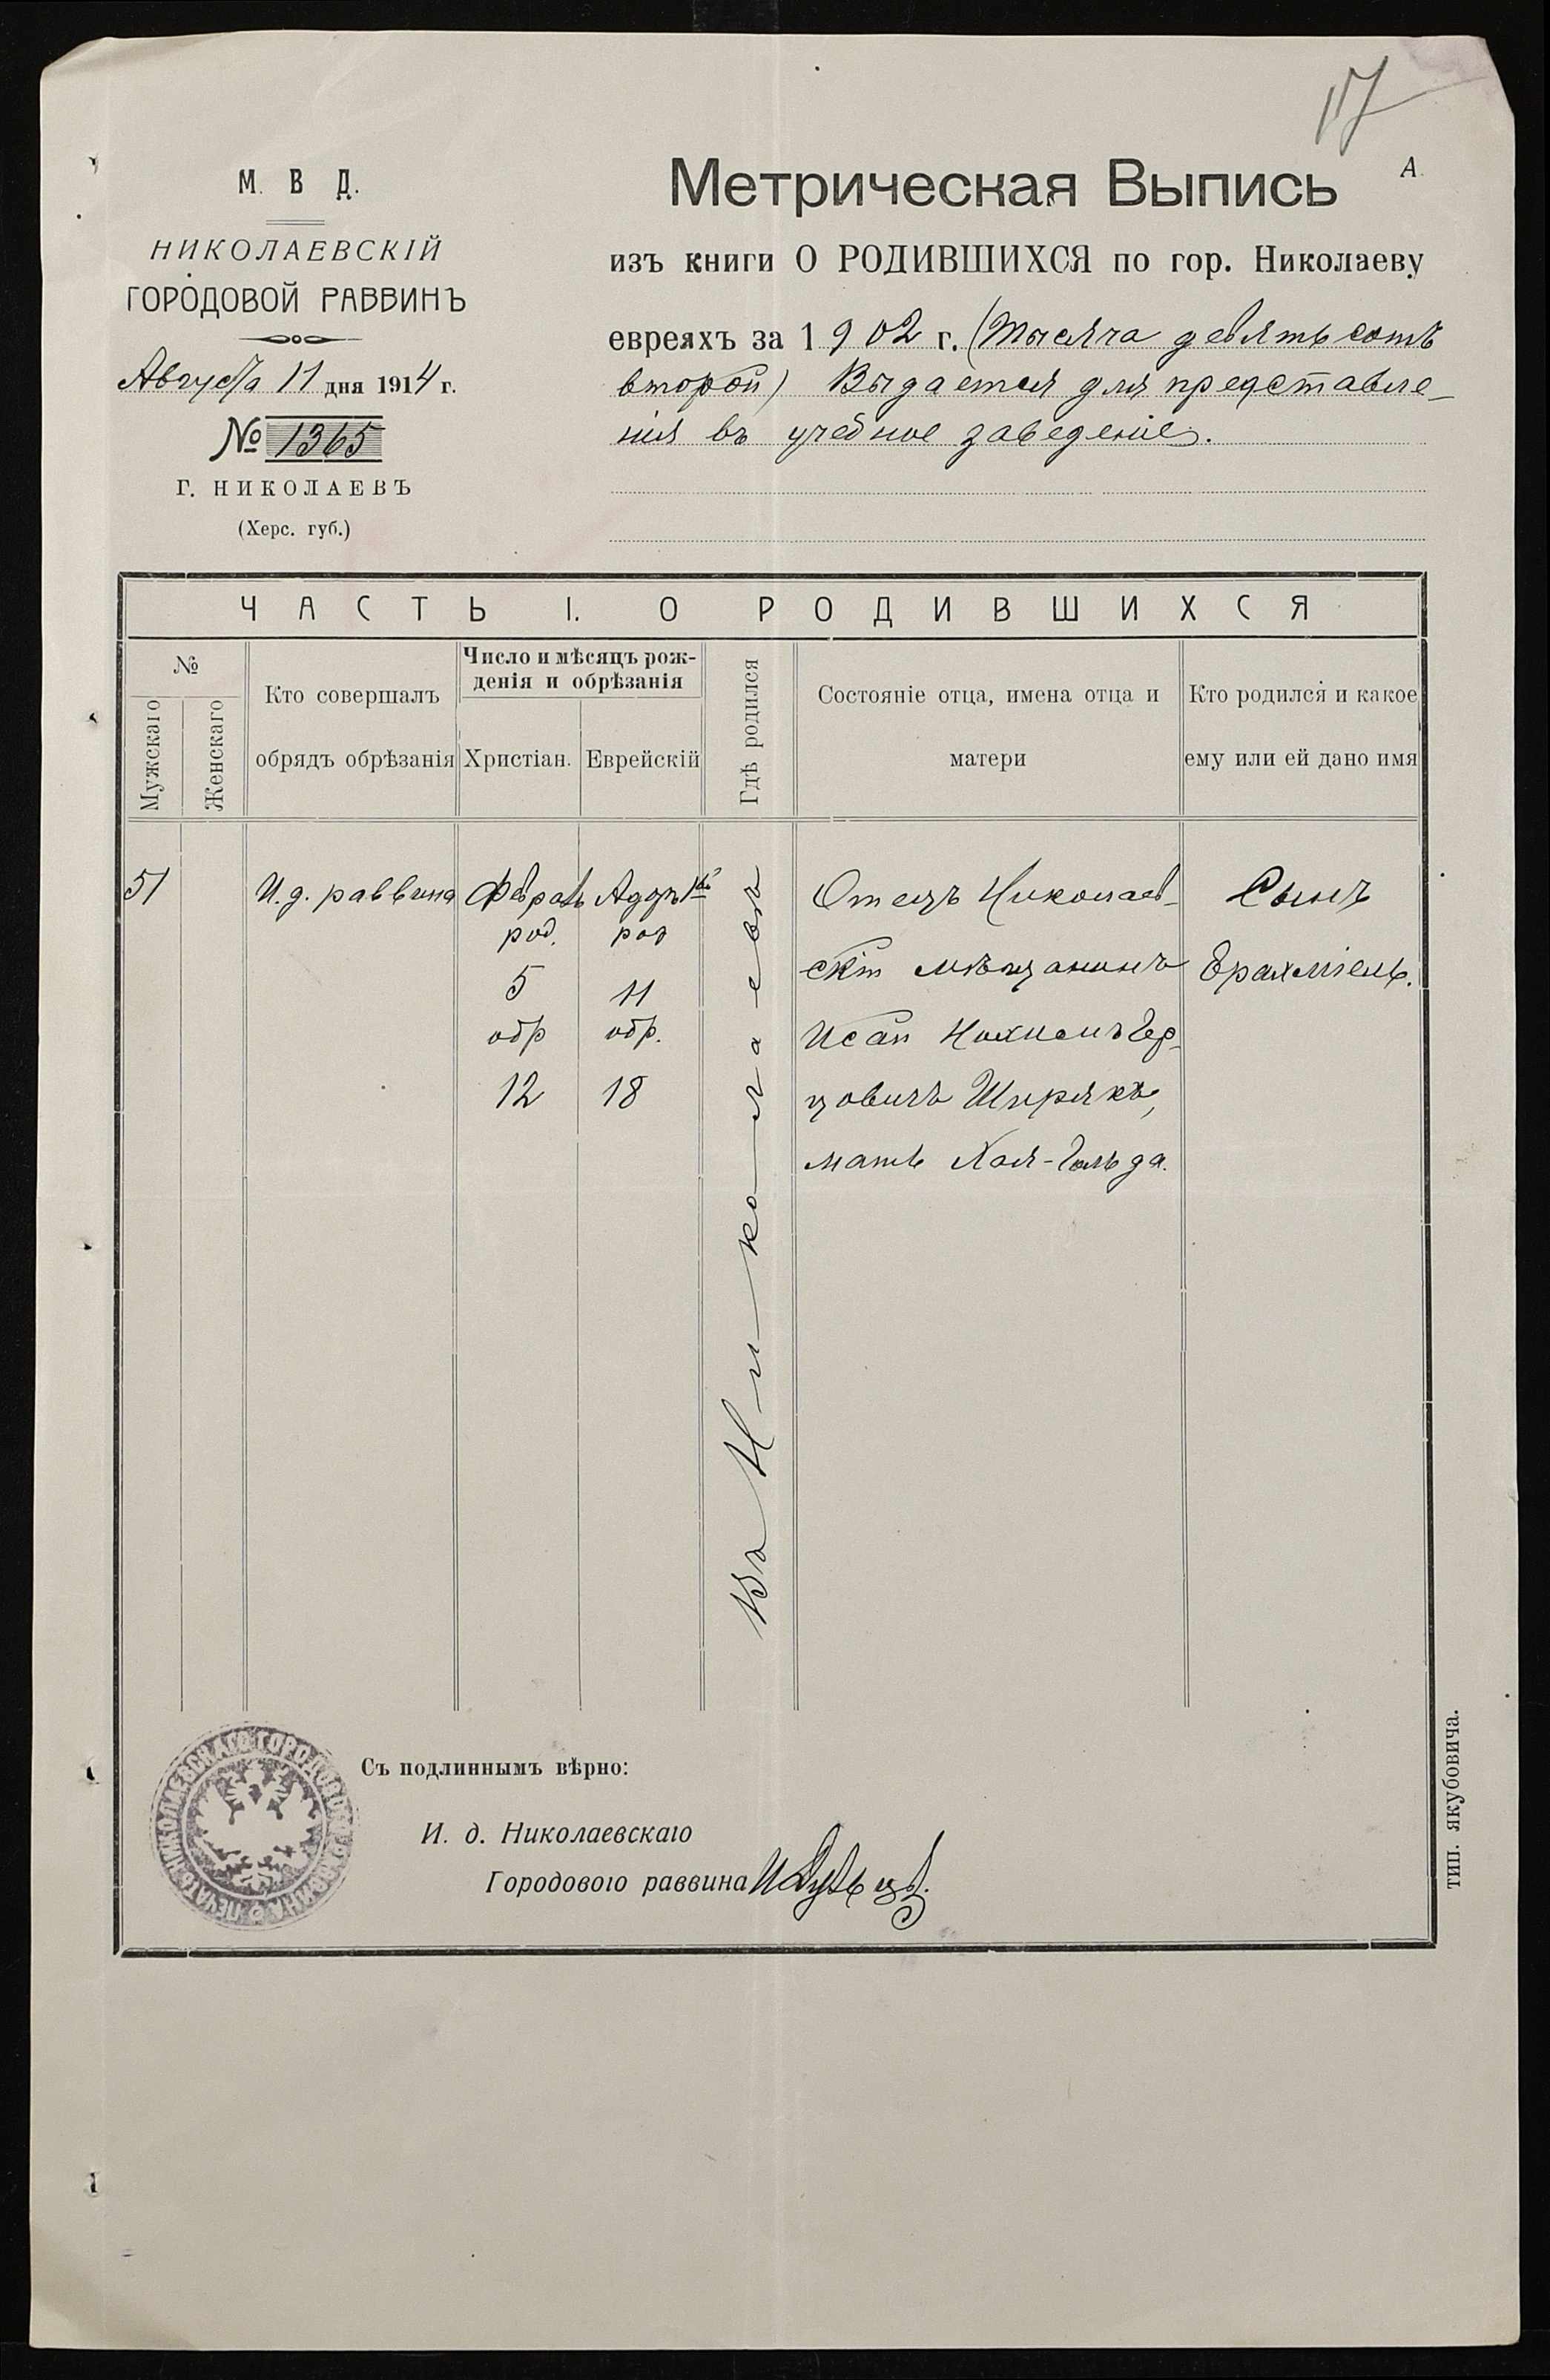 17
А.
М. В. Д.
НИКОЛАЕВСКІЙ
ГОРОДОВОЙ РАВВИНЪ
Августа 11 дня 1914 г.
№ 1365
Г. НИКОЛАЕВЪ
(Херс. губ.)
Метрическая Выпись
изъ книги О РОДИВШИХСЯ по гор. Николаеву
евреяхъ за 1902 г. (Тысяча девятьсотъ
второй) Выдается для представле-
нія въ учебное заведеніе.
ЧАСТЬ I. О РОДИВШИХСЯ
№
Мужскаго
Женскаго
Кто совершалъ
обрядъ обрѣзанія
Число и мѣсяцъ рож-
денія и обрѣзанія
Христіан.
Еврейскій
Гдѣ родился
Состояніе отца, имена отца и
матери
Кто родился и какое
ему или ей дано имя
51
И. д. раввина
Февраль
род.
5
обр
12
Адаръ 1й
род
11
обр.
18
Въ Николаевѣ
Отецъ Николаев-
скій мѣщанинъ
Исай Нохимъ Гер-
цовичъ Ширякъ,
мать Хая-Гольда.
Сынъ
Ерахміель.
Съ подлиннымъ вѣрно:
И. д. Николаевскаго
Городового раввина
ПЕЧАТЬ НИКОЛАЕВСКАГО ГОРОДОВОГО РАВВИНА
тип. якубовича.